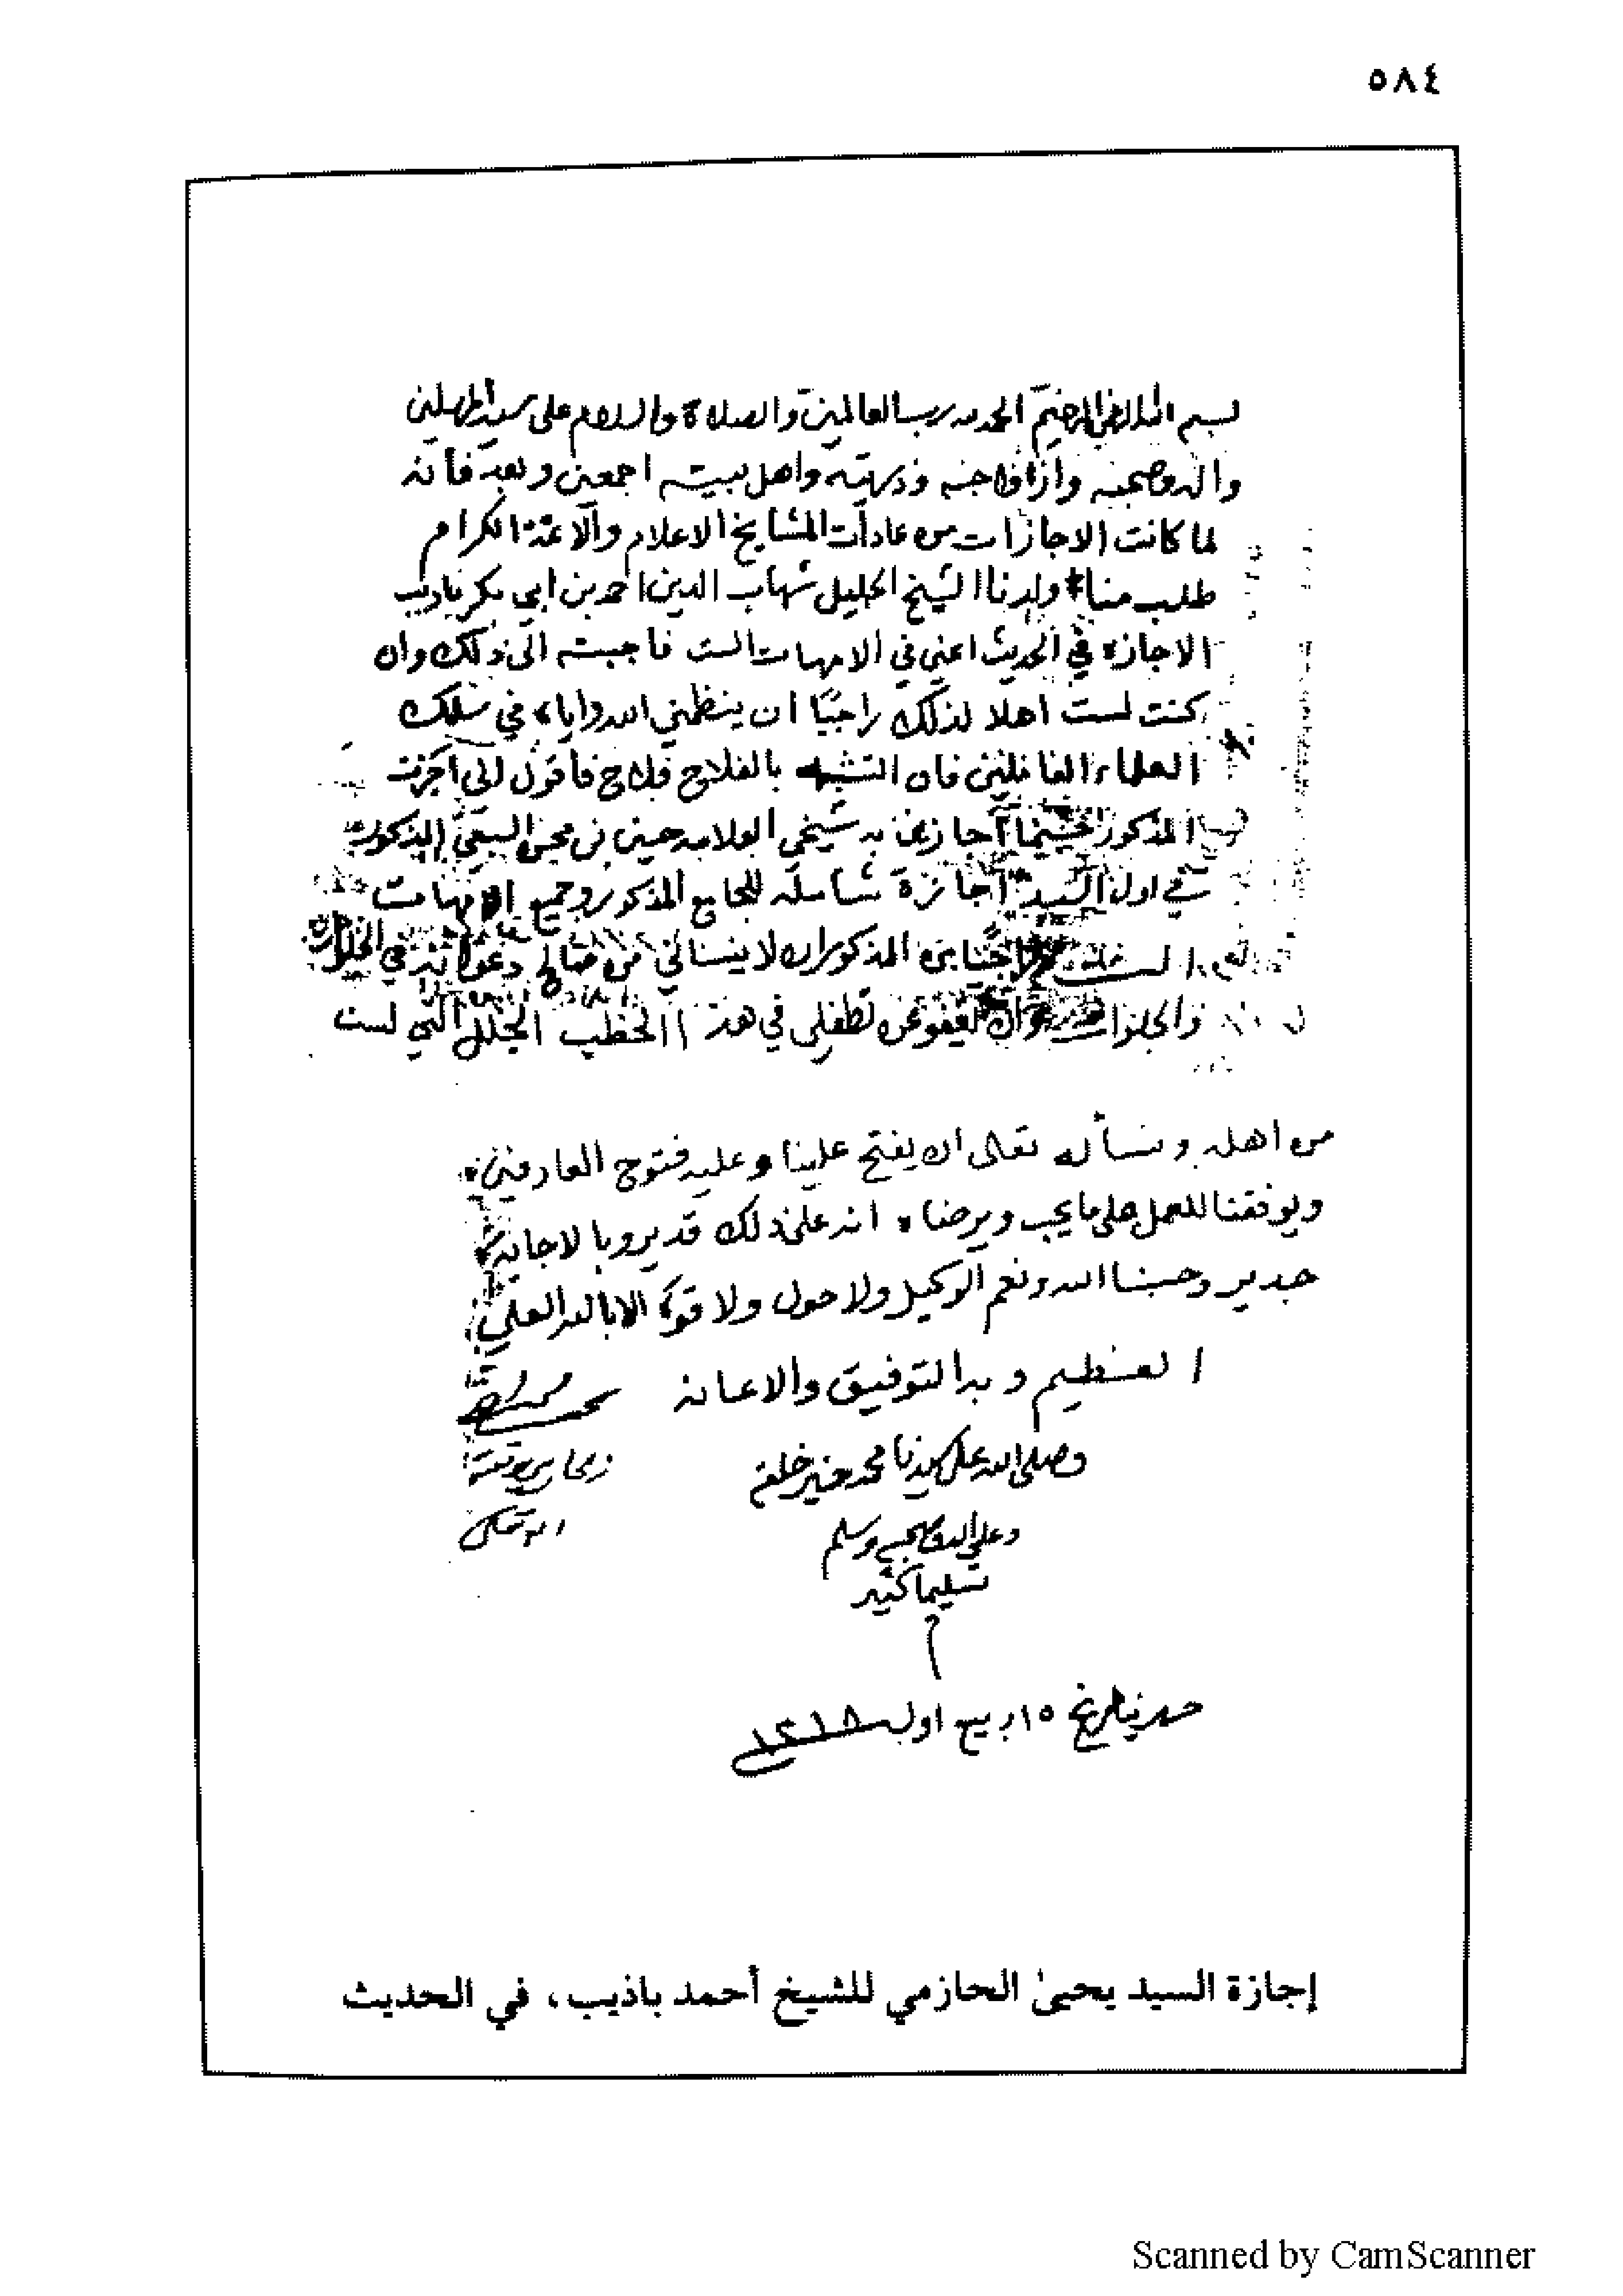 ٥٨٤
بسم الله الرحمن الرحيم الحمد لله رب العالمين والصلاة والسلام على سيد المرسلين
واله وصحبه وازواجه وذريته واهل بيته اجمعين وبعد فأنه
لما كانت الاجازات من عادات المشايخ الاعلام والائمة الكرام
طلب منا ولدنا الشيخ الجليل شهاب الدين احمد بن ابي بكر باذيب
الاجازة في الحديث اعني في الامهات الست فاجبته الى ذلك وان
كنت لست اهلا لذلك راجيًا ان ينظمني الله واياه في سلك
العلماء العاملين فان التشبه بالفلاح فلاح فأقول اني اجزت
المذكور فيما اجازني به شيخي العلامة حسين بن محسن السبعي المذكور
في اول اجازة شاملة للجامع المذكور وجميع الامهات
الست من المذكور ان لا ينساني من صالح دعواته في الخلوات
والجلوات وان يعفو عن تطفلي في هذا الخطب الجلل التي لست
من اهله ونسأله تعالى ان يفتح علينا وعليه فتوح العارفين
ويوفقنا للعمل على ما يحب ويرضاه انه على ذلك قدير وبالاجابة
جدير وحسبنا الله ونعم الوكيل ولا حول ولا قوة الا بالله العلي
العظيم وبه التوفيق والاعانه
وصلى الله على سيدنا محمد خير خلقه
وعلى اله وصحبه وسلم
تسليما كثير
م
حرر بتاريخ ١٥ ربيع اول ١٢١٨
إجازة السيد يحيىٰ الحازمي للشيخ أحمد باذيب، في الحديث
Scanned by CamScanner